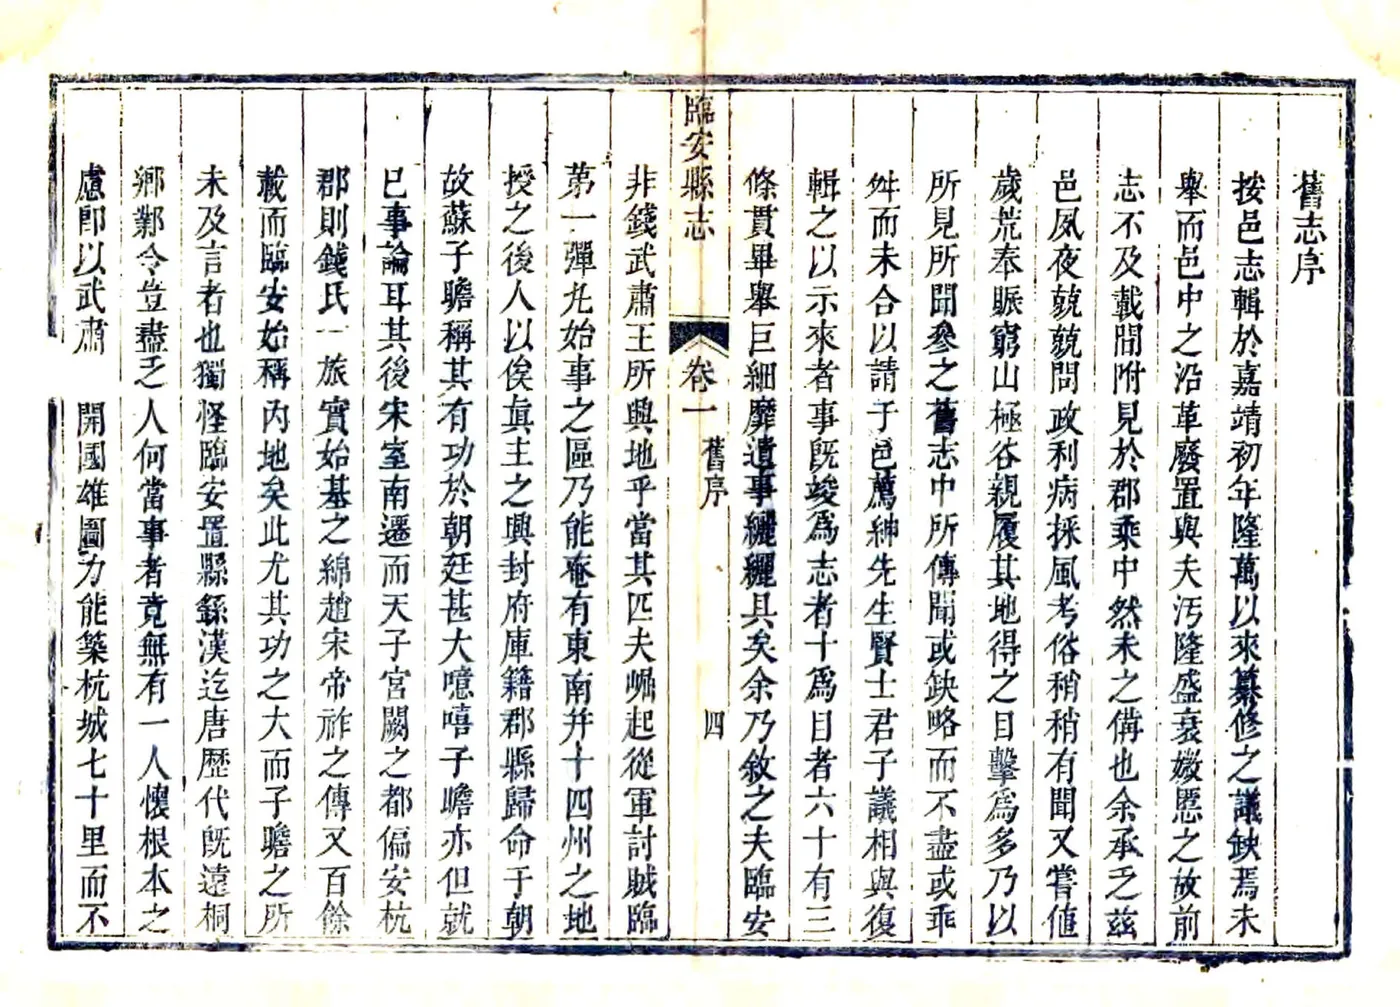 舊志序
按邑志輯於嘉靖初年隆萬以來纂修之議缺焉未
舉而邑中之沿革廢置與夫汚隆盛衰媺慝之故前
志不及載間附見於郡乘中然未之備也余承乏茲
邑夙夜兢兢問政利病採風考俗稍稍有聞又嘗値
歲荒奉賑窮山極谷親履其地得之目擊爲多乃以
所見所聞參之舊志中所傳聞或缺略而不盡或乖
舛而未合以請于邑薦紳先生賢士君子議相與復
輯之以示來者事旣竣爲志者十爲目者六十有三
條貫畢舉巨細靡遺事纚纚具矣余乃敘之夫臨安
臨安縣志 卷一 舊序 四
非錢武肅王所興地乎當其匹夫崛起從軍討賊臨
第一彈丸始事之區乃能奄有東南幷十四州之地
授之後人以俟眞主之興封府庫籍郡縣歸命于朝
故蘇子瞻稱其有功於朝廷甚大噫嘻子瞻亦但就
已事論耳其後宋室南遷而天子宮闕之都偏安杭
郡則錢氏一旅實始基之綿趙宋帝祚之傳又百餘
載而臨安始稱內地矣此尤其功之大而子瞻之所
未及言者也獨怪臨安置縣繇漢迄唐歷代旣遠桐
鄉鄴令豈盡乏人何當事者竟無有一人懷根本之
慮卽以武肅 開國雄圖力能築杭城七十里而不